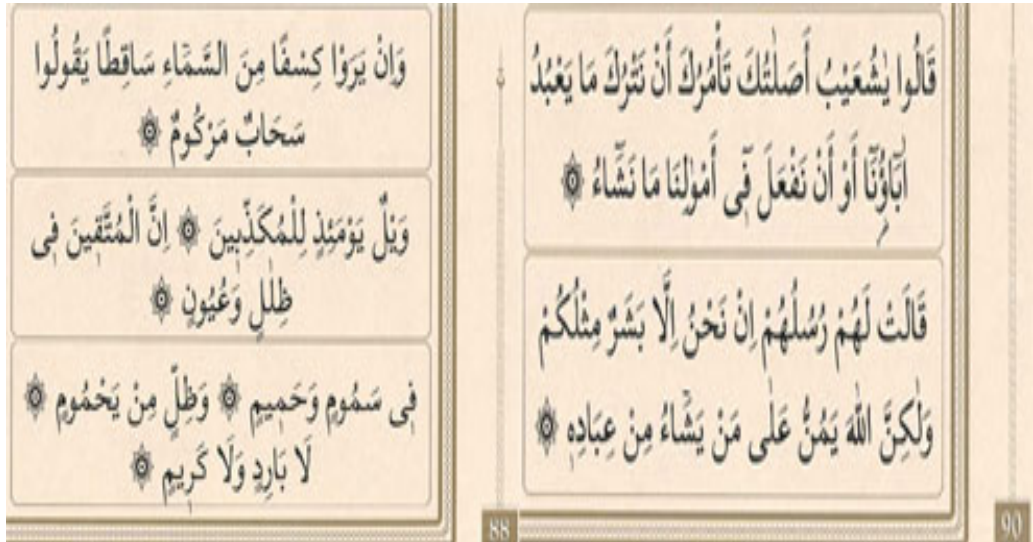 قَالُوا يٰشُعَيْبُ أَصَلٰتُكَ تَأْمُرُكَ أَنْ نَتْرُكَ مَا يَعْبُدُ
اٰبَٓاؤُنَٓا أَوْ أَنْ نَفْعَلَ فٖٓى أَمْوٰلِنَا مَا نَشَٓاءُ ۞
قَالَتْ لَهُمْ رُسُلُهُمْ اِنْ نَحْنُ اِلَّا بَشَرٌ مِثْلُكُمْ
وَلٰكِنَّ اللّٰهَ يَمُنُّ عَلٰى مَنْ يَشَٓاءُ مِنْ عِبَادِهٖ ۞
90
وَاِنْ يَرَوْا كِسْفًا مِنَ السَّمَٓاءِ سَاقِطًا يَقُولُوا
سَحَابٌ مَرْكُومٌ ۞
وَيْلٌ يَوْمَئِذٍ لِلْمُكَذِّبٖينَ ۞ اِنَّ الْمُتَّقٖينَ فٖى
ظِلٰلٍ وَعُيُونٍ ۞
فٖى سَمُومٍ وَحَمٖيمٍ ۞ وَظِلٍّ مِنْ يَحْمُومٍ ۞
لَا بَارِدٍ وَلَا كَرٖيمٍ ۞
88